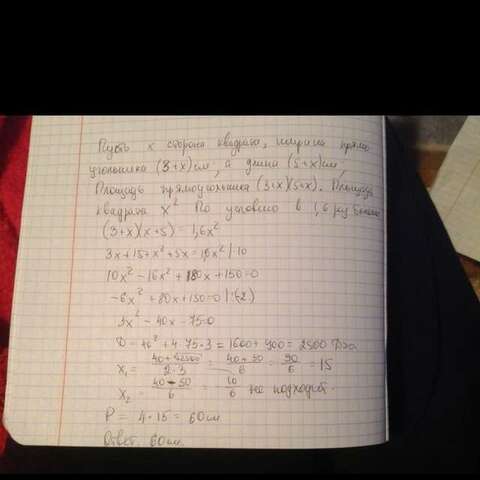 Пусть x сторона квадрата, ширина прямо
угольника (3+x) см, а длина (5+x) см,
Площадь прямоугольника (3+x)(5+x). Площадь
квадрата x² По условию в 1,6 раз больше
(3+x)(x+5) = 1,6x²
3x+15+x²+5x=1,6x² |·10
10x² - 16x² + 80x + 150 = 0
-6x² + 80x + 150 = 0 |:(-2)
3x² - 40x - 75=0
D = 40² + 4·75·3 = 1600 + 900 = 2500
x₁ = (40+√2500)/(2·3) = (40+50)/6 = 90/6 = 15
x₂ = (40-50)/6 = -10/6 не подходит.
P = 4·15 = 60 см
Ответ. 60 см.